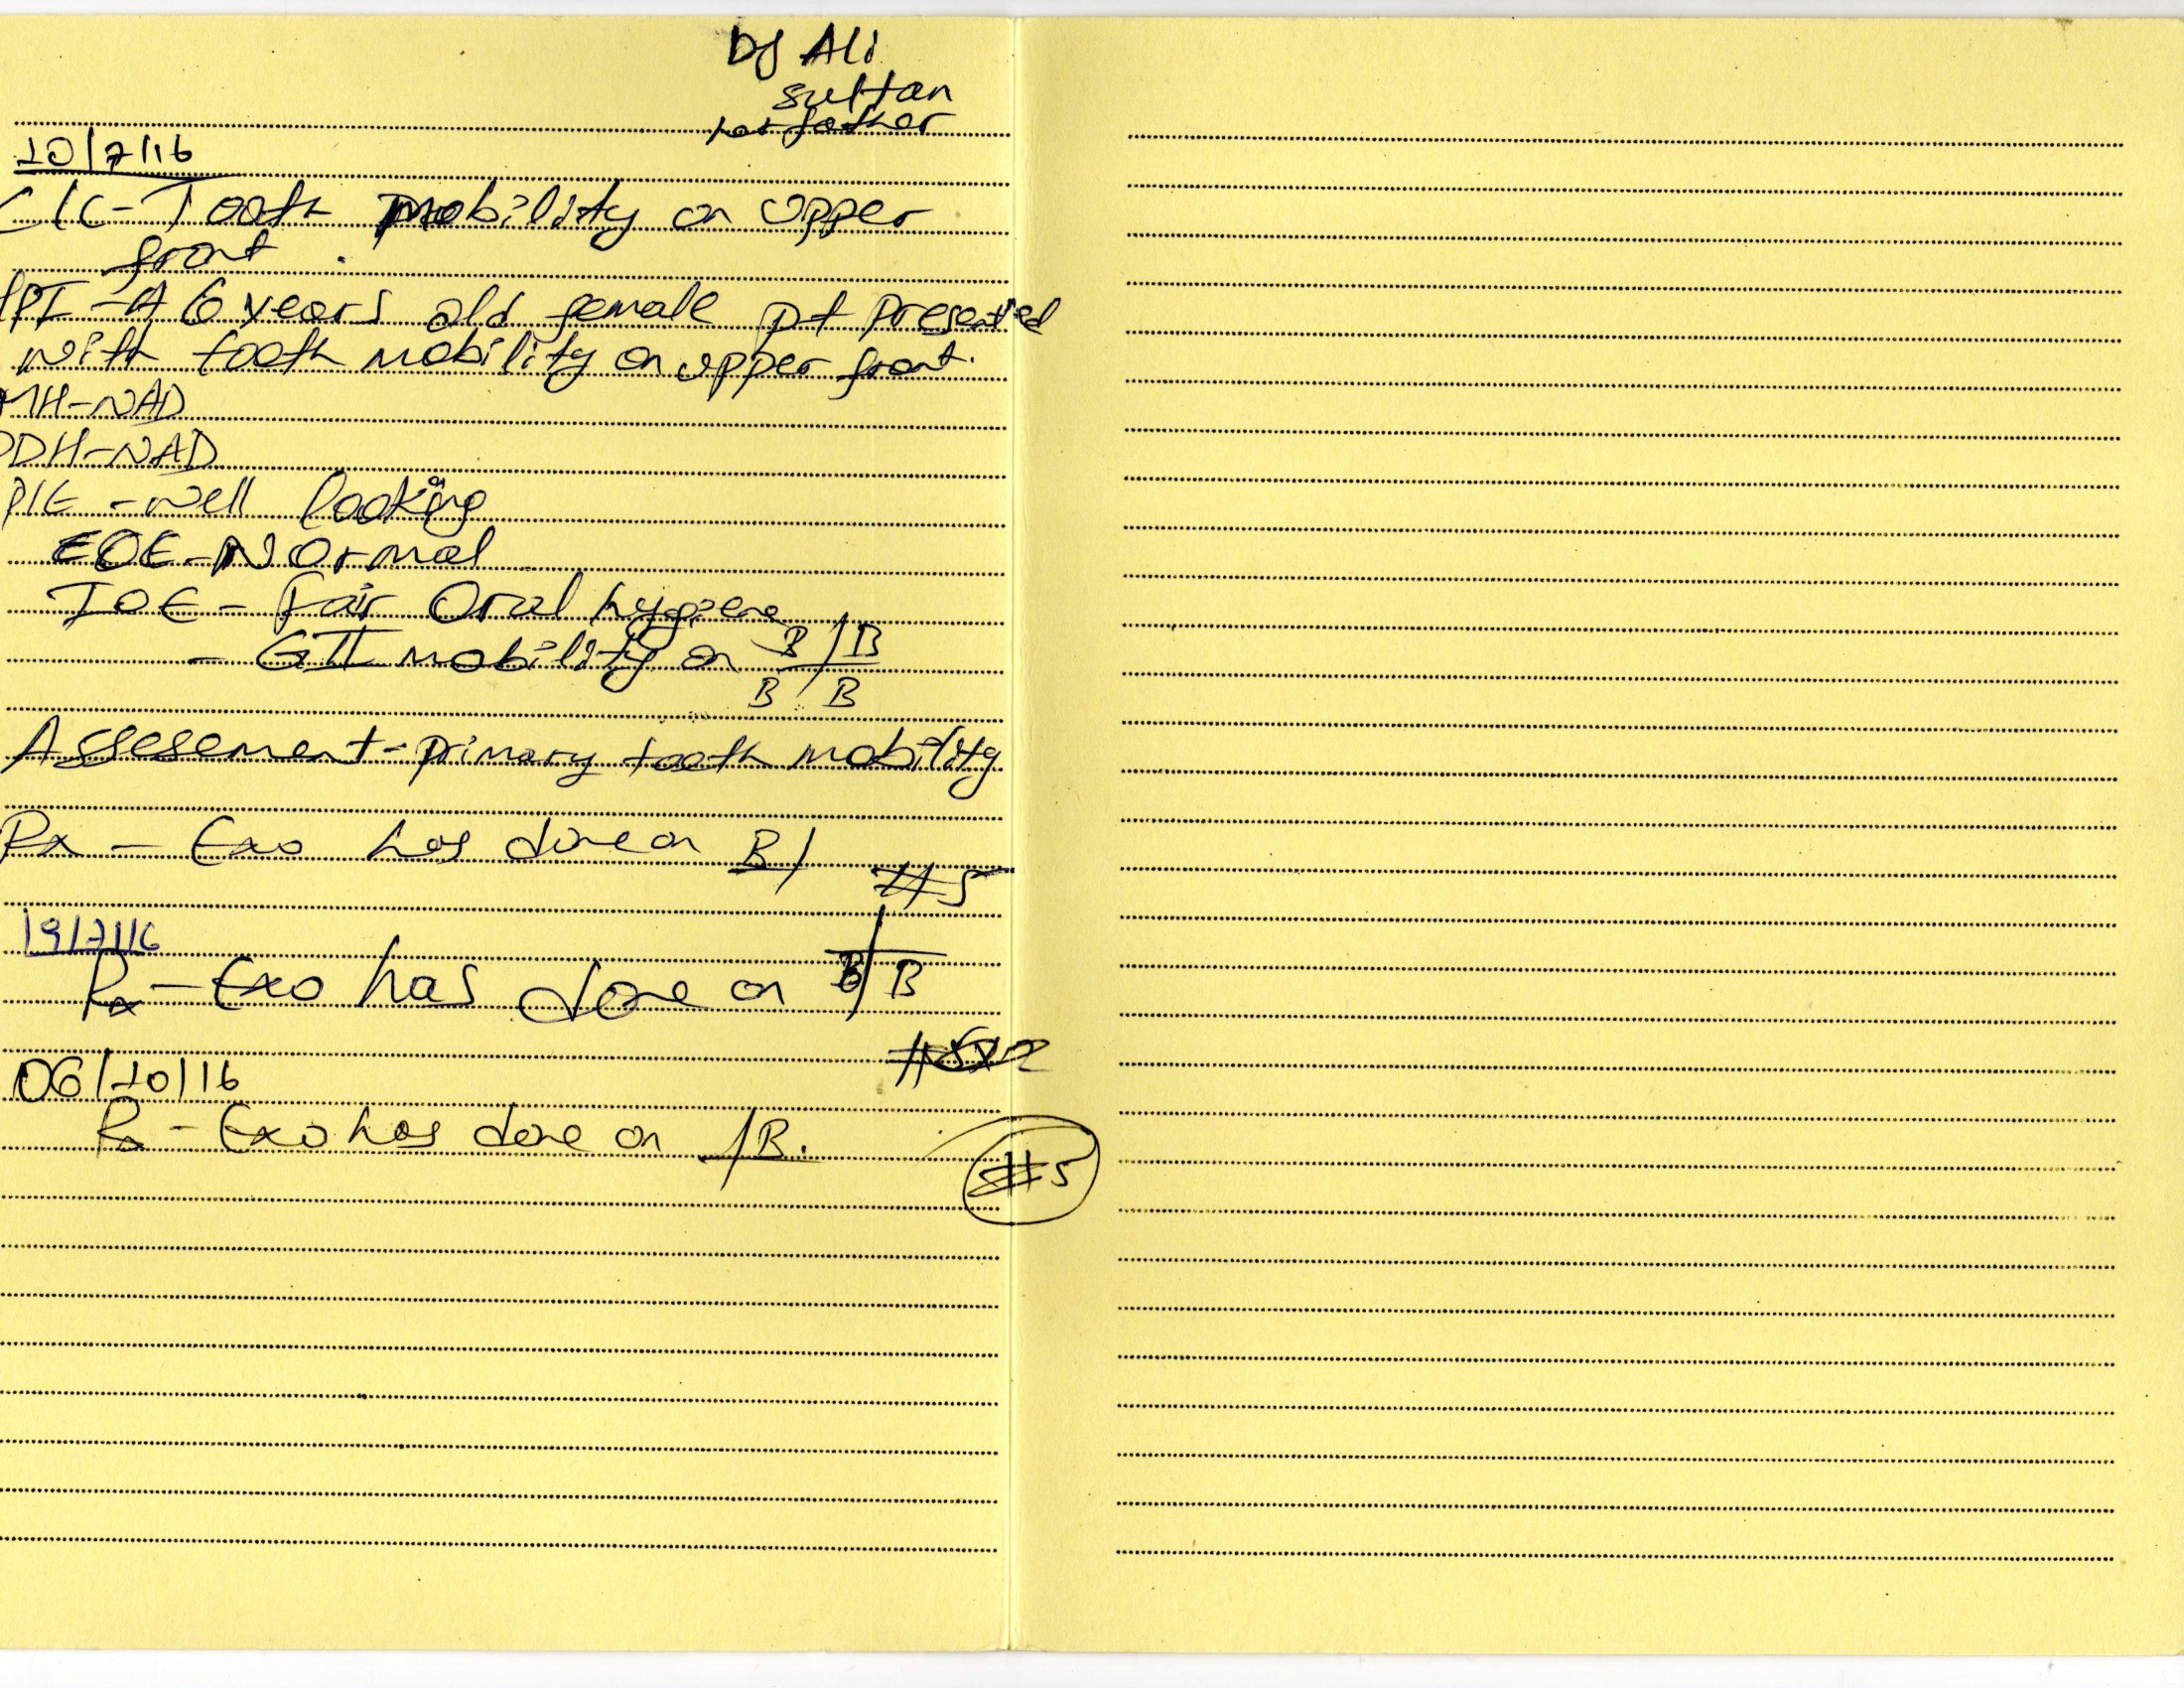 Dr Ali
sultan
her father
10/7/16
C/C-Tooth mobility on upper
front.
HPI-A 6 years old female pt presented
with tooth mobility on upper front.
MH-NAD
PDH-NAD
P/E-well looking
EOE-Normal
IOE-Fair Oral hygiene
-GII mobility on B/B
B B
Assesement-primary tooth mobility
Rx-Exo has done on B/
#5
19/7/16
Rx-Exo has done on B/B
06/10/16
Rx-Exo has done on /B.
#5